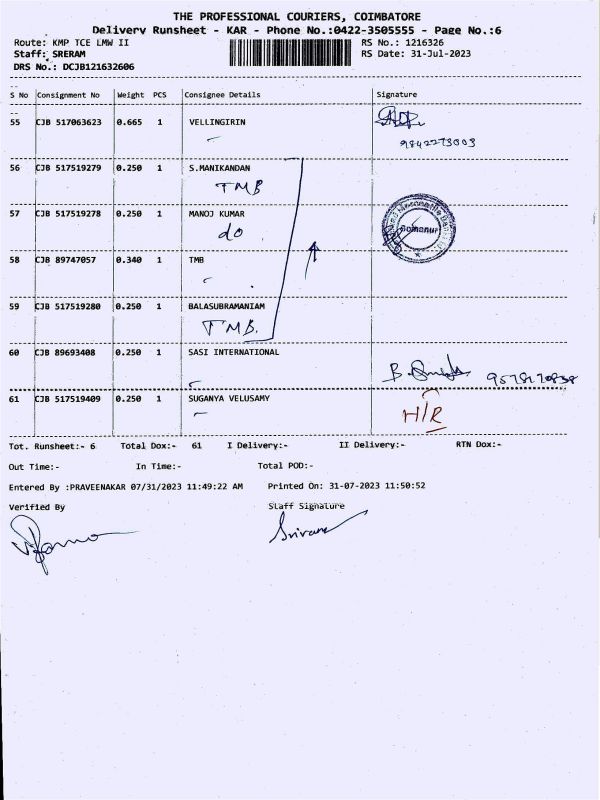 THE PROFESSIONAL COURIERS, COIMBATORE
Delivery Runsheet - KAR - Phone No.:0422-3505555 - Page No.:6
Route: KMP TCE LMW II
RS No.: 1216326
Staff: SRERAM
RS Date: 31-Jul-2023
DRS No.: DCJB121632606
S No Consignment No Weight PCS Consignee Details Signature
55 CJB 517063623 0.665 1 VELLINGIRIN
9842273003
56 CJB 517519279 0.250 1 S.MANIKANDAN
TMB
57 CJB 517519278 0.250 1 MANOJ KUMAR
do
58 CJB 89747057 0.340 1 TMB
59 CJB 517519280 0.250 1 BALASUBRAMANIAM
TMB.
60 CJB 89693408 0.250 1 SASI INTERNATIONAL
61 CJB 517519409 0.250 1 SUGANYA VELUSAMY
H/R
Tot. Runsheet:- 6 Total Dox:- 61 I Delivery:- II Delivery:- RTN Dox:-
Out Time:- In Time:- Total POD:-
Entered By :PRAVEENAKAR 07/31/2023 11:49:22 AM Printed On: 31-07-2023 11:50:52
Verified By Staff Signature